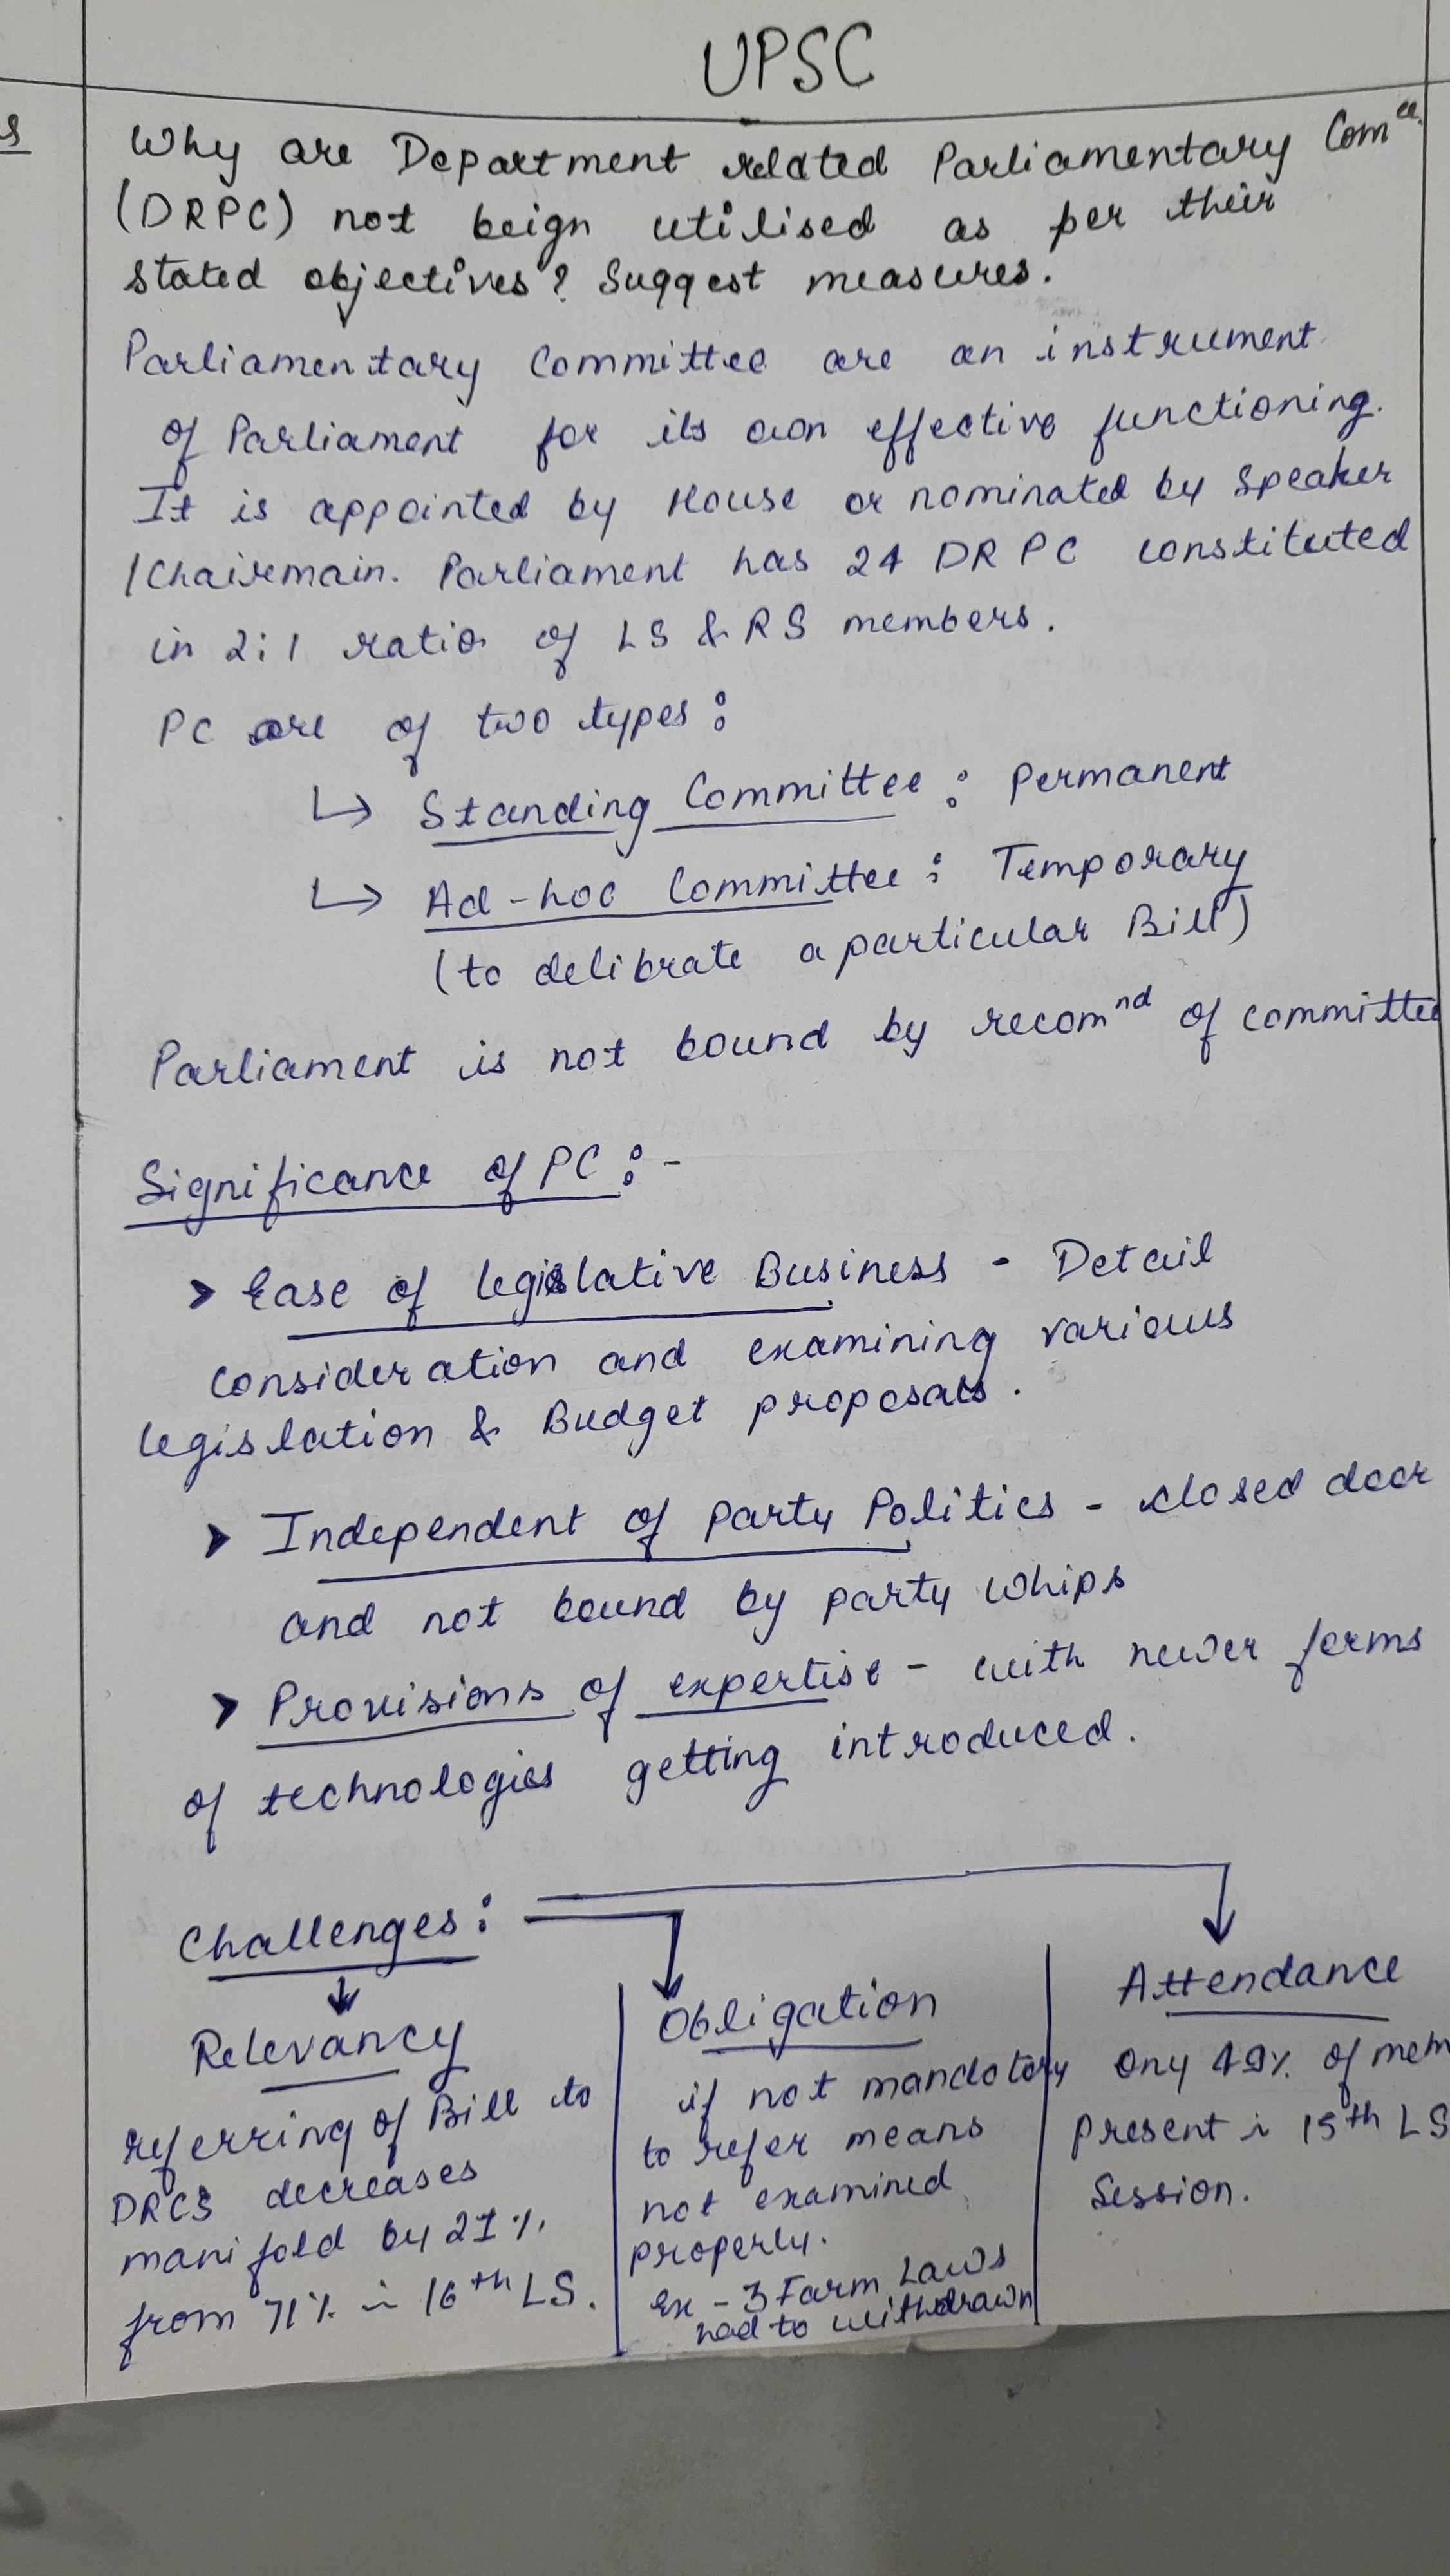 UPSC
s
Why are Department related Parliamentary Comee.
(DRPC) not beign utilised as per their
stated objectives? Suggest measures.
Parliamentary Committee are an instrument
of Parliament for its own effective functioning.
It is appointed by House or nominated by Speaker
/Chairmain. Parliament has 24 DRPC constituted
in 2:1 ratio of LS & RS members.
PC are of two types:
↳ Standing Committee: Permanent
↳ Ad-hoc Committee: Temporary
(to delibrate a particular Bill)
Parliament is not bound by recomnd of committee
Significance of PC:-
> Ease of legislative Business - Detail
consideration and examining various
legislation & Budget proposals.
> Independent of Party Politics - closed door
and not bound by party whips
> Provisions of expertise - with newer forms
of technologies getting introduced.
Challenges:
Relevancy
referring of Bill to
DRCs decreases
manifold by 27%
from 71% in 16th LS.
Obligation
if not mandatory
to refer means
not examined
properly.
Ex - 3 Farm Laws
had to withdrawn
Attendance
Ony 49% of mem
present in 15th LS
Session.